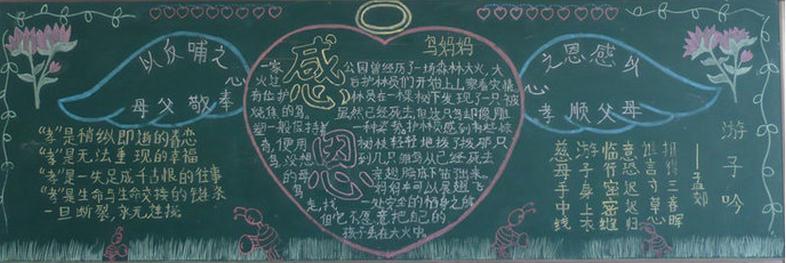 以反哺之
心
奉
敬
父
母
之恩感以
心
孝
顺
父
母
感
恩
鸟妈妈
公园曾经历了一场森林大火，大
火过后护林员们开始上山察看灾情
有位护林员在一棵树下发现了一只被
烧焦的鸟。虽然已经死去
树枝轻轻地拨了拨那只
鸟，没想到几只雏鸟从已经死去
的母亲翅膀底下钻出来。
鸟妈妈本可以展翅飞
走，找一处安全的栖身之所
但它不愿意把自己的
孩子丢在大火中。
“孝”是稍纵即逝的眷恋
“孝”是无法重现的幸福
“孝”是一失足成千古恨的往事
“孝”是生命与生命交接的链条
一旦断裂，永无连接
游子吟
——孟郊
慈母手中线
游子身上衣
临行密密缝
意恐迟迟归
谁言寸草心
报得三春晖